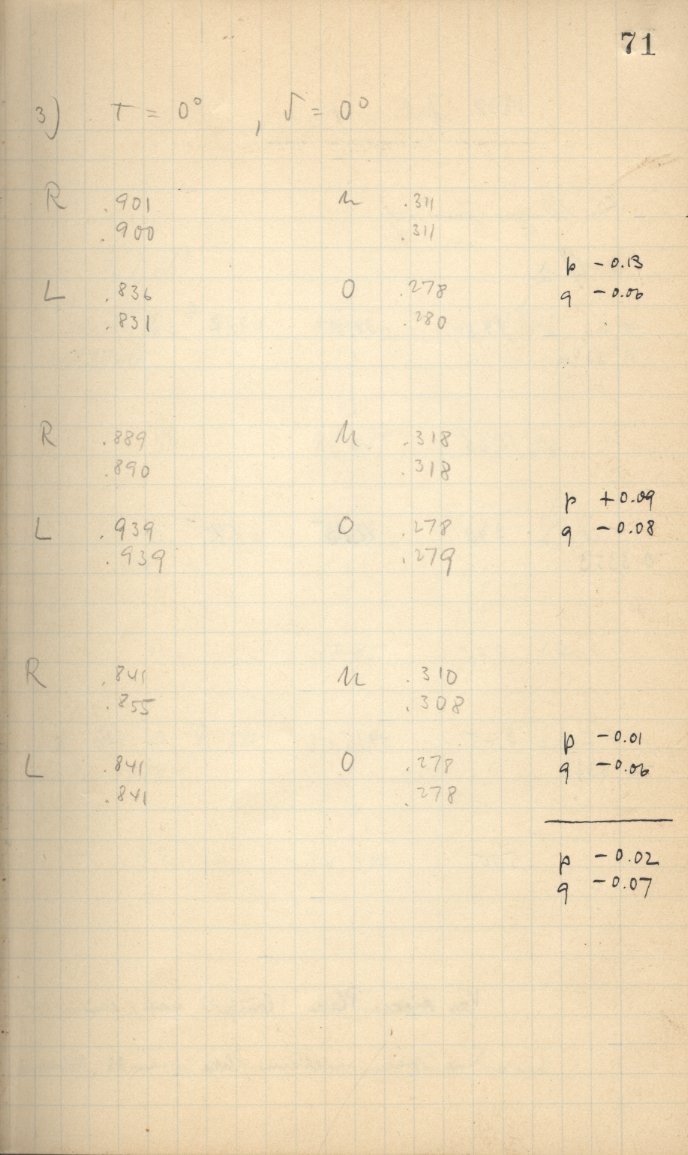 71
3) T = 0° , δ = 0°
R .901 u .311
.900 .311
p - 0.13
L .836 O .278 q - 0.06
.831 .280
R .889 u .318
.890 .318
p + 0.09
L .939 O .278 q - 0.08
.939 .279
R .841 u .310
.855 .308
p - 0.01
L .841 O .278 q - 0.06
.841 .278
p - 0.02
q - 0.07